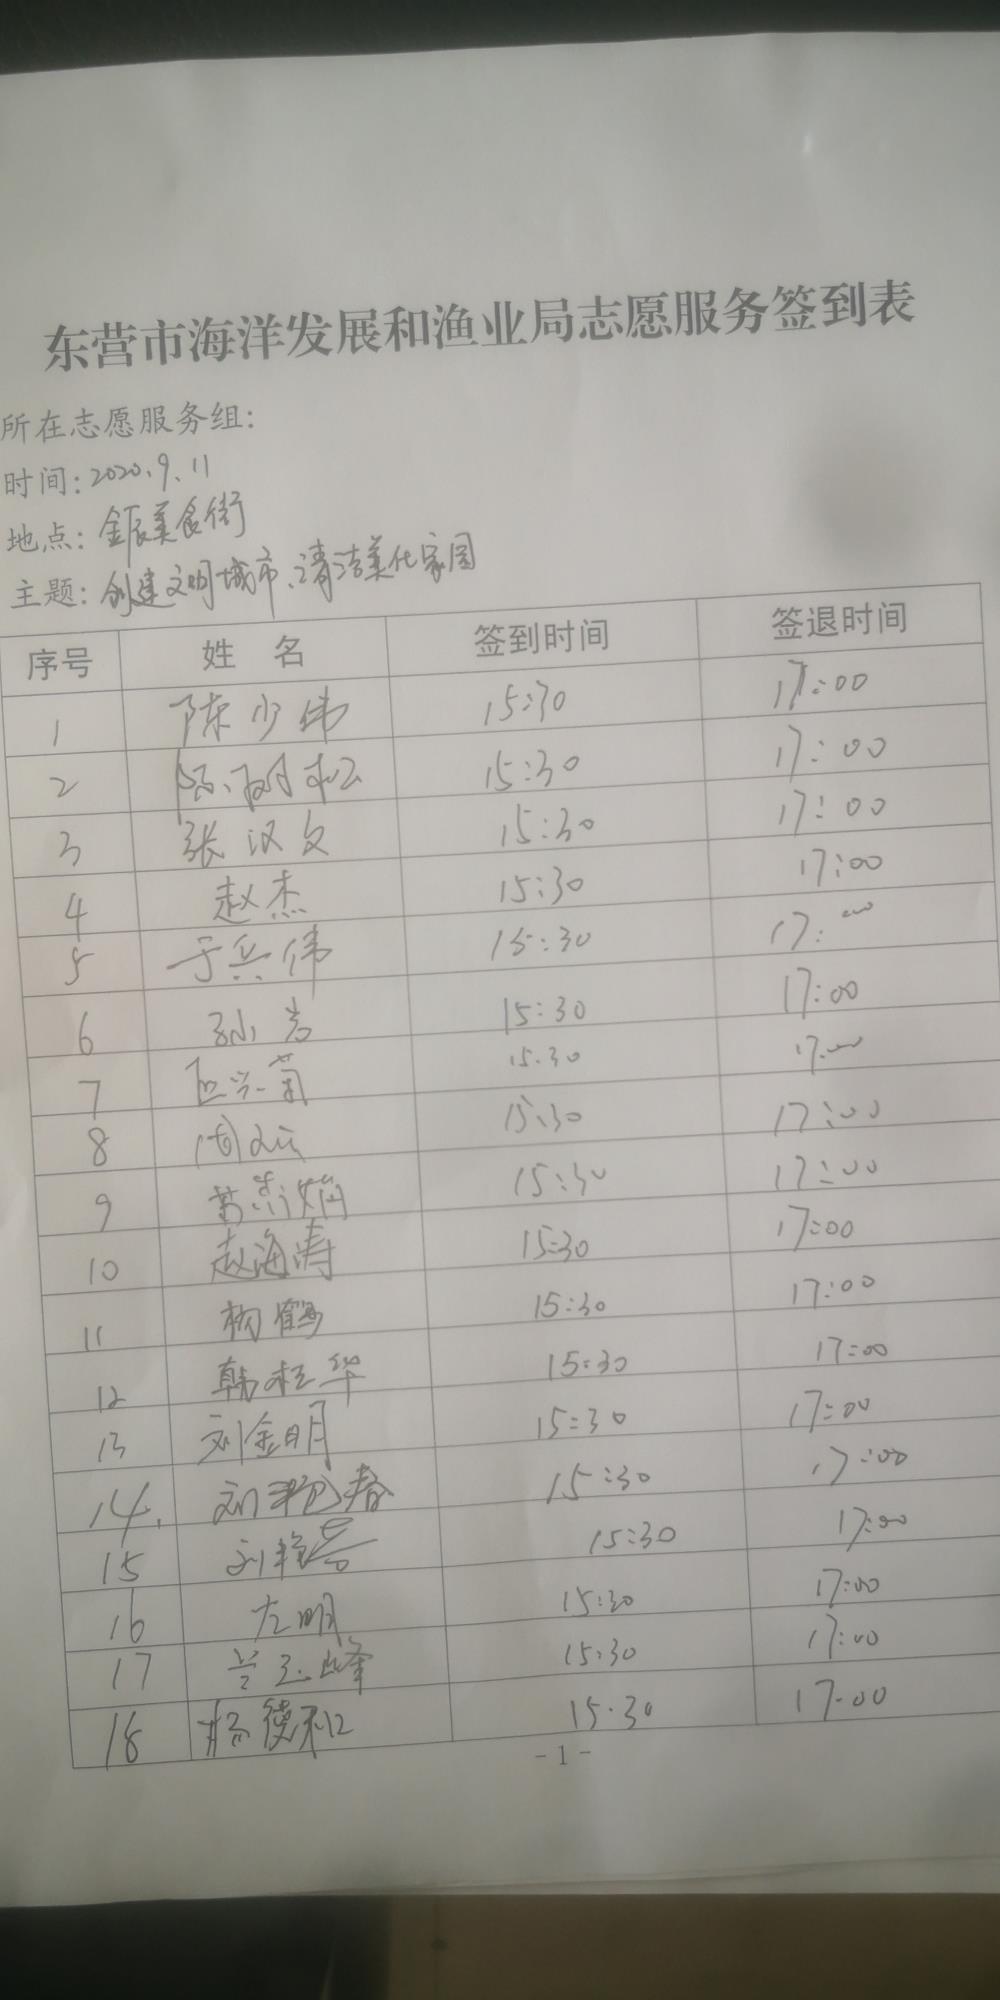 东营市海洋发展和渔业局志愿服务签到表
所在志愿服务组:
时间: 2020.9.11
地点: 金辰美食街
主题: 创建文明城市、清洁美化家园
序号 姓名 签到时间 签退时间
1 陈少伟 15:30 17:00
2 15:30 17:00
3 张汉文 15:30 17:00
4 赵杰 15:30 17:00
5 于兵伟 15:30 17:00
6 孙岩 15:30 17:00
7 15.30 17:00
8 15:30 17:00
9 15:30 17:00
10 赵海涛 15:30 17:00
11 杨鹤 15:30 17:00
12 韩桂华 15:30 17:00
13 刘金明 15:30 17:00
14. 刘艳春 15:30 17:00
15 15:30 17:00
16 左明 15:30 17:00
17 兰玉峰 15:30 17:00
18 杨德和 15.30 17.00
- 1 -